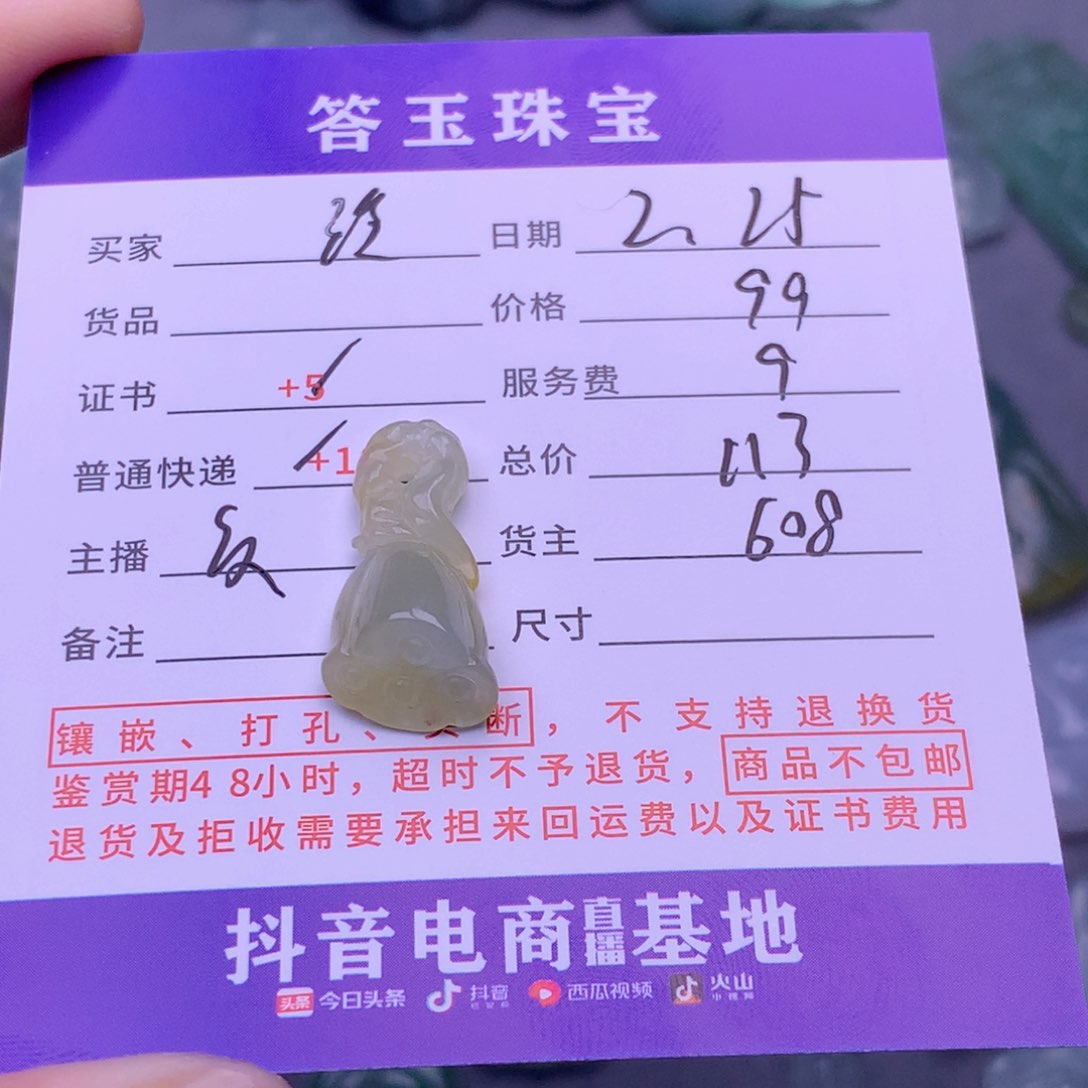 答玉珠宝
买家 日期 2. 25
货品 价格 99
证书 +5 服务费 9
普通快递 +1 总价 113
主播 货主 608
备注 尺寸
镶嵌、打孔、 断，不支持退换货
鉴赏期48小时，超时不予退货，商品不包邮
退货及拒收需要承担来回运费以及证书费用
抖音电商直播基地
头条 今日头条 抖音 西瓜视频 火山